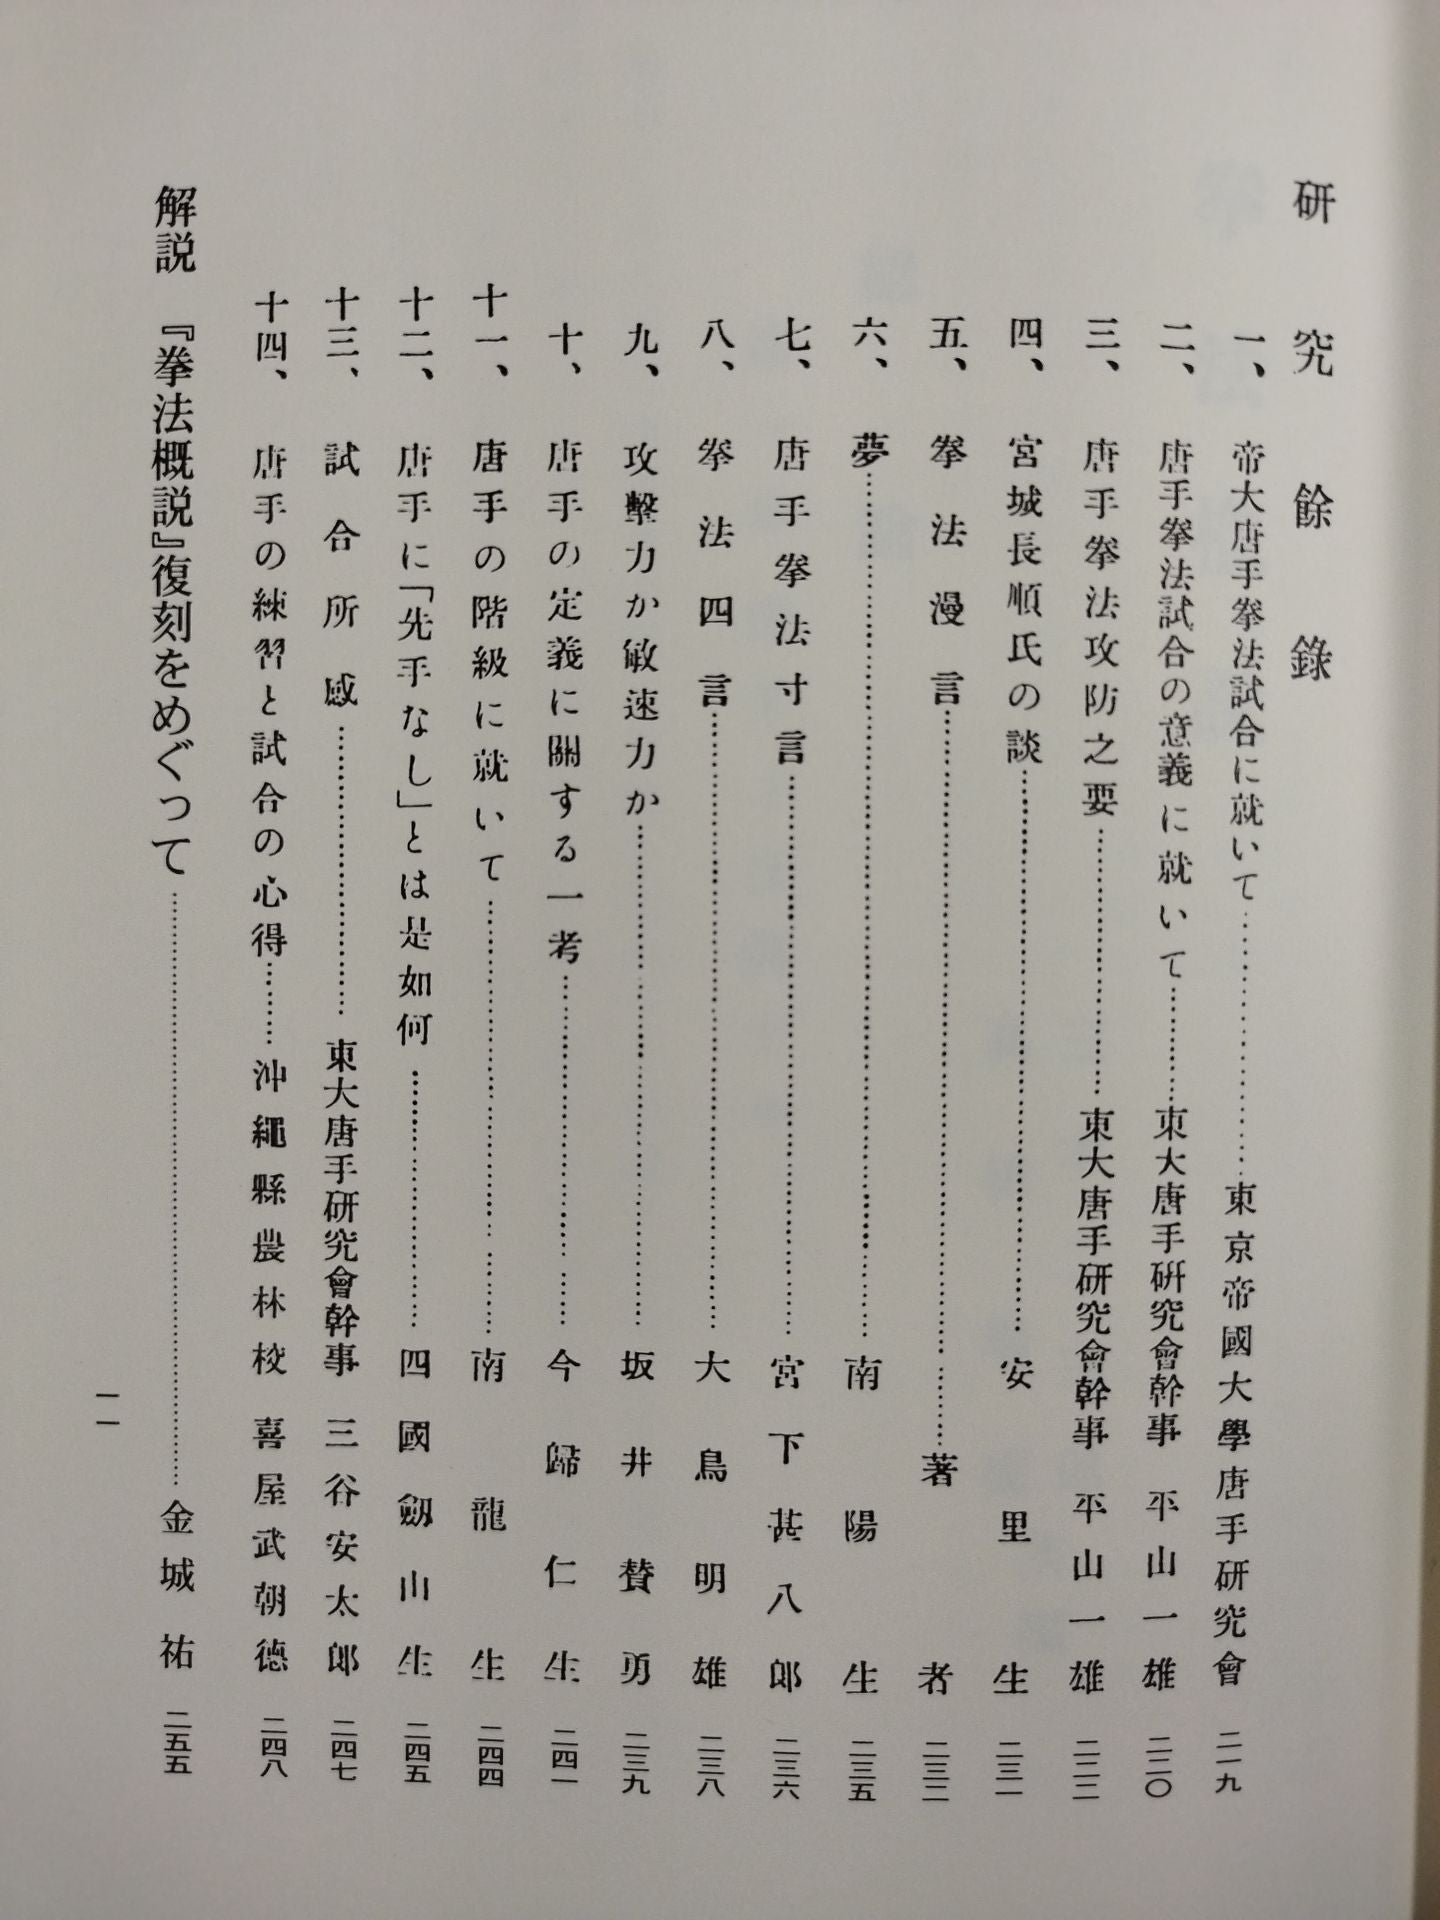 研究餘錄
一、帝大唐手拳法試合に就いて…………東京帝國大學唐手研究會 二一九
二、唐手拳法試合の意義に就いて…………東大唐手研究會幹事 平山一雄 二二〇
三、唐手拳法攻防之要…………東大唐手研究會幹事 平山一雄 二二二
四、宮城長順氏の談…………安里生 二三一
五、拳法漫言…………著者 二三二
六、夢…………南陽生 二三五
七、唐手拳法寸言…………宮下甚八郎 二三六
八、拳法四言…………大鳥明雄 二三八
九、攻擊力か敏速力か…………坂井賛勇 二三九
十、唐手の定義に關する一考…………今歸仁生 二四一
十一、唐手の階級に就いて…………南龍生 二四四
十二、唐手に「先手なし」とは是如何…………四國劔山生 二四五
十三、試合所感…………東大唐手研究會幹事 三谷安太郎 二四七
十四、唐手の練習と試合の心得…………沖繩縣農林校 喜屋武朝德 二四八
解説 『拳法概説』復刻をめぐって…………金城祐 二五五
一一